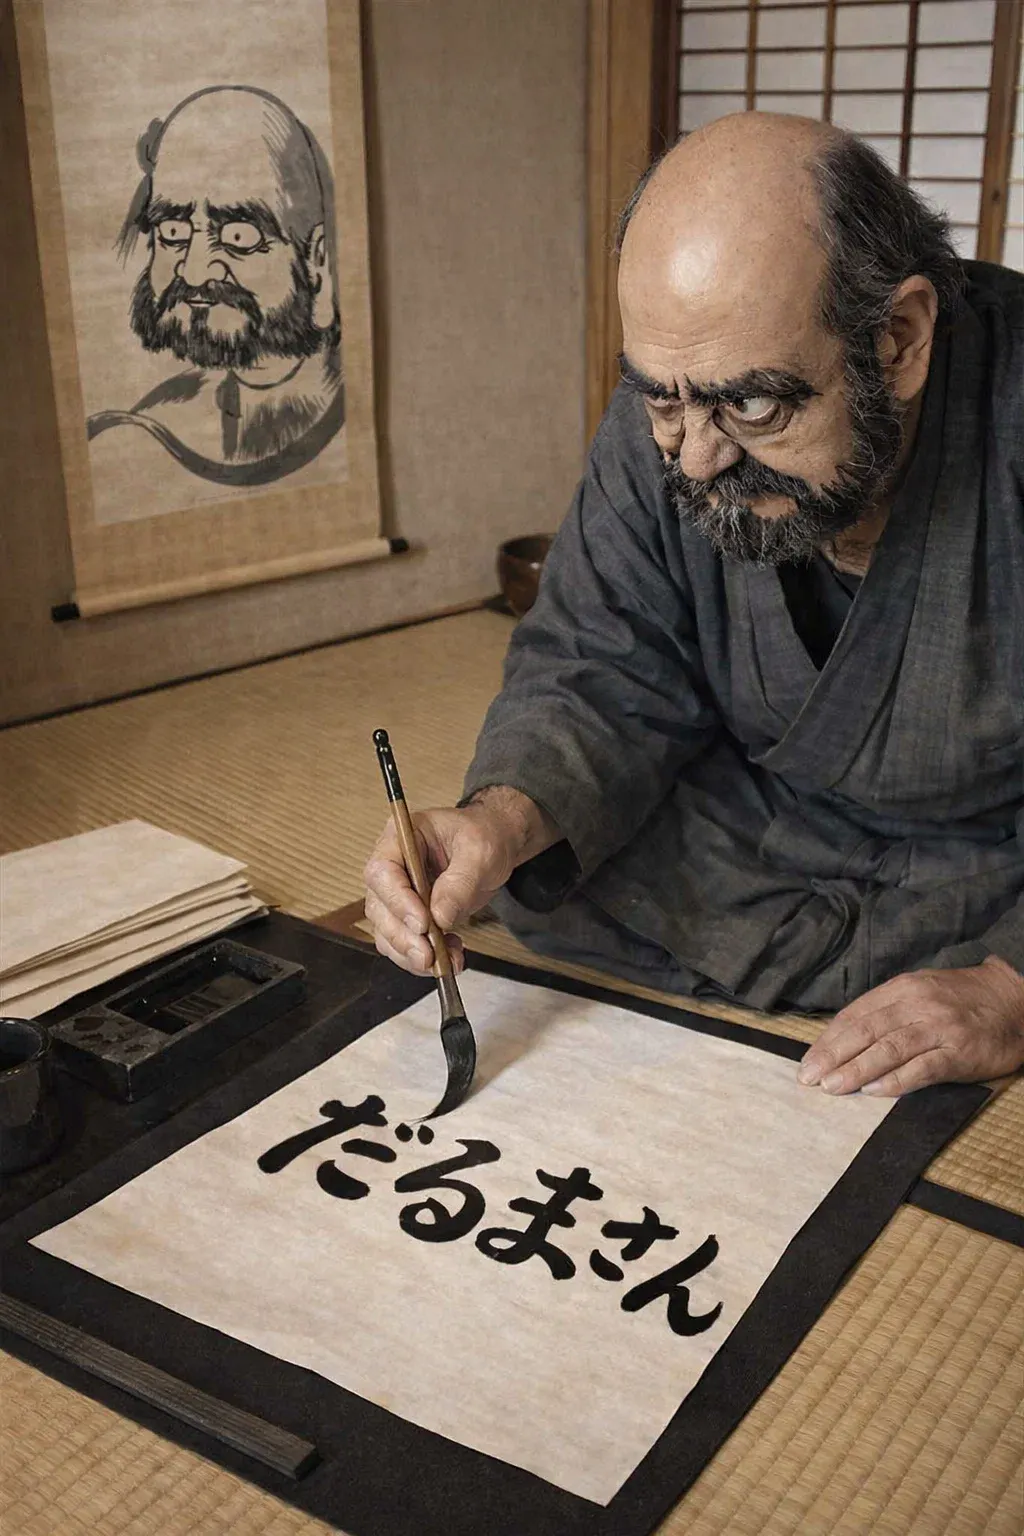 だるまさん